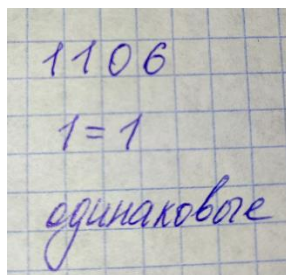 1106
1 = 1
одинаковые